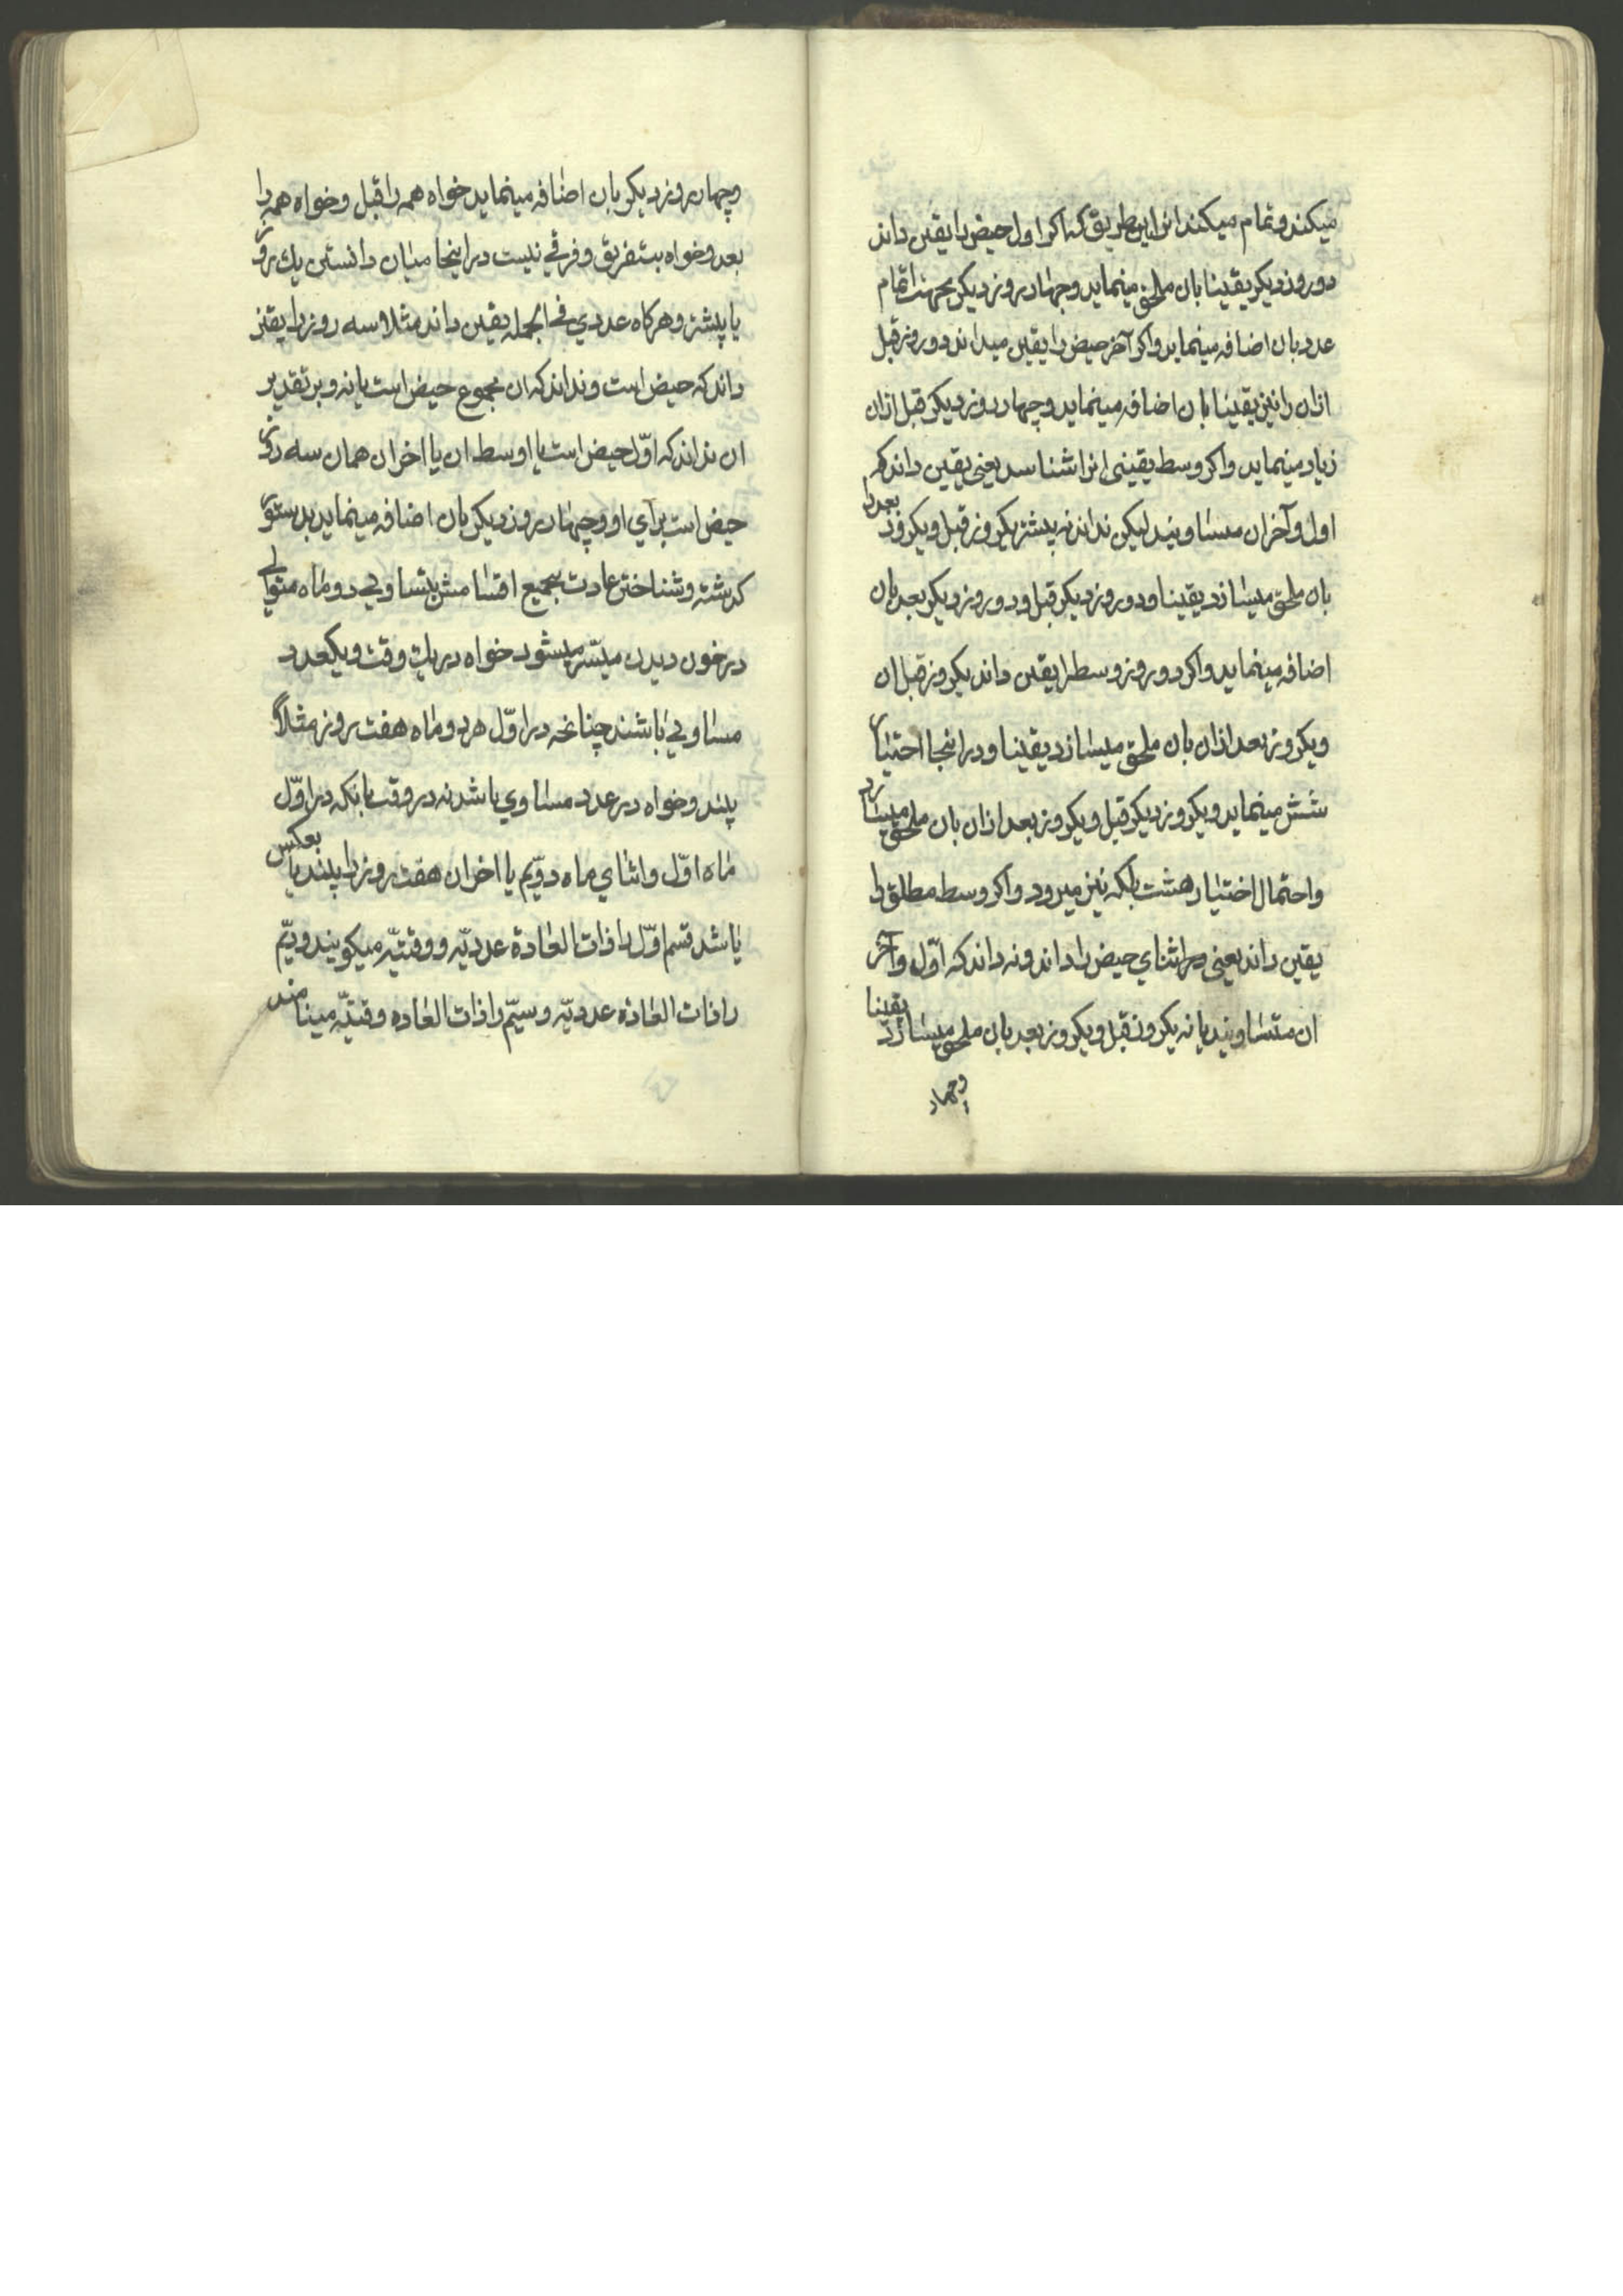 میکند و تمام میکند انرا باین طریق که اکر اول حیض را یقین داند
دو روز دیکر یقینا بان ملحق مینماید و چهار روز دیکر بجهت اتمام
عدد بان اضافه مینماید و اکر آخر حیض را یقین میداند دو روز قبل
ازان را نیز یقینا بان اضافه مینماید و چهار روز دیکر قبل ازان
زیاد مینماید و اکر وسط یقینی انرا شناسد یعنی یقین داند که
اول و آخر ان مساویند لیکن نداند نه بیشتر یکروز قبل و یکروز بعد را
بان ملحق میسازد یقینا و دو روز دیکر قبل و دو روز دیکر بعد بان
اضافه مینماید و اکر دو روز وسط را یقین داند یکروز قبل ان
و یکروز بعد ازان بان ملحق میسازد یقینا و در اینجا اختیار
شش مینماید و یکروز دیکر قبل و یکروز بعد ازان بان ملحق میسازد
و احتمال اختیار هشت بلکه نیز میرود و اکر وسط مطلق را
یقین داند یعنی در اثنای حیض را داند و نه داند که اوّل و آخر
ان متساویند یا نه یکروز قبل و یکروز بعد بان ملحق میسازد یقینا
و چهار
و چهار روز دیکر بان اضافه مینماید خواه همه را قبل و خواه همه را
بعد و خواه بتفریق و فرقی نیست در اینجا میان دانستن یك روز
یا بیشتر و هرکاه عددی فی الجمله یقین داند مثلا سه روز را یقین
داند که حیض است و نداند که ان مجموع حیض است یا نه و بر تقدیر
ان نداند که اوّل حیض است یا اوسط ان یا اخر ان همان سه روز
حیض است برای او و چهار روز دیکر بان اضافه مینماید بدستور
کذشته و شناختن عادت بجمیع اقسامش بتساوی دو ماه متوالی
در خون دیدن میسّر میشود خواه در یك وقت و یکعدد
مساوی باشند چنانچه در اوّل هر دو ماه هفت روز مثلا
بیند و خواه در عدد مساوی باشد نه در وقت بانکه در اوّل
ماه اوّل و اثنای ماه دوّیم یا اخر ان هفت روز را بیند یا بعکس
باشد قسم اوّل را ذات العادة عددیّه و وقتیّه میکویند و دویّم
را ذات العادة عددیّه و سیّم را ذات العاده وقتیّه مینامند